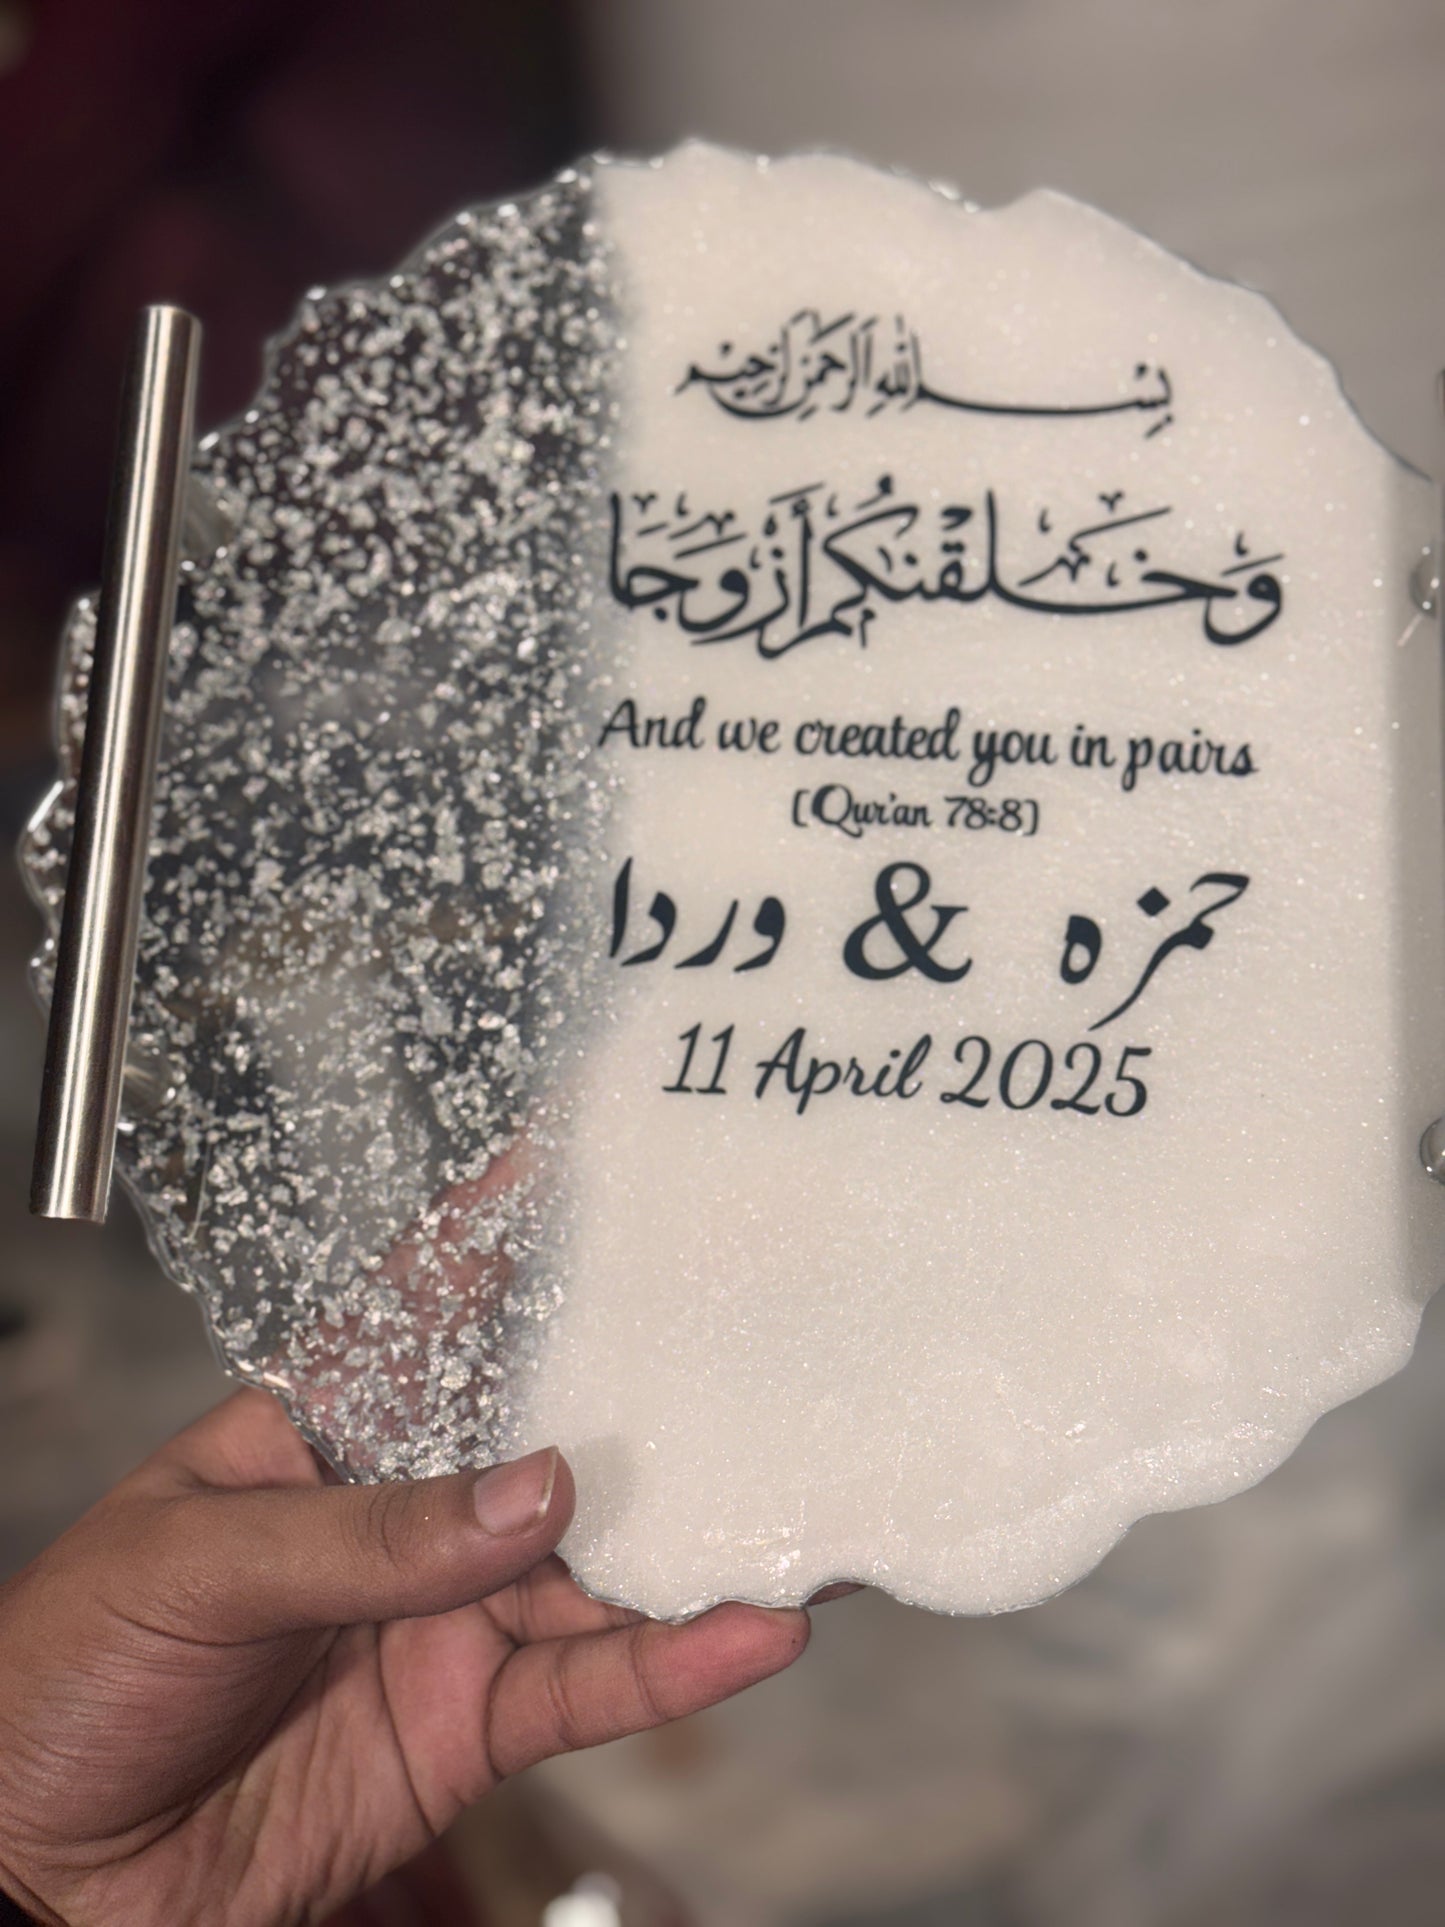 بِسْمِ اللَّهِ الرَّحْمَٰنِ الرَّحِيمِ
وَخَلَقْنَٰكُمْ أَزْوَٰجًا
And we created you in pairs
(Qur'an 78:8)
حمزہ & وردا
11 April 2025